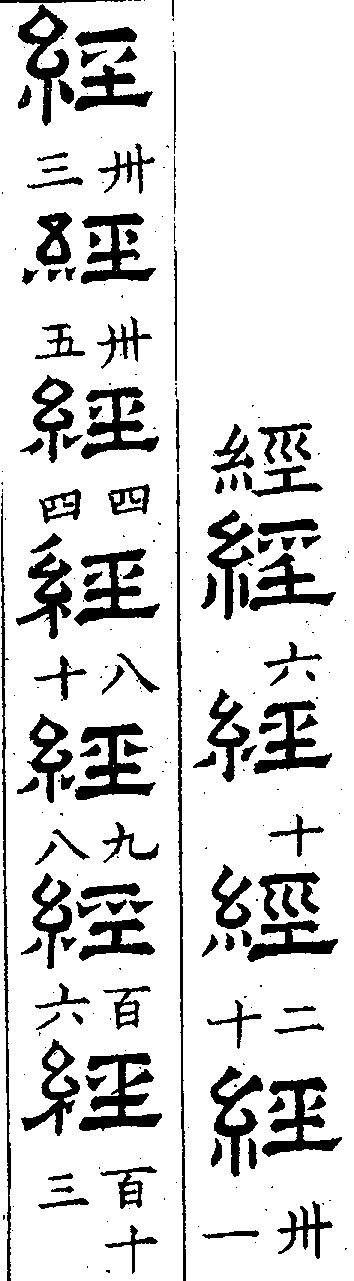 經經六經十經二十經卅一
經卅三經卅五經四四經八十經九八經百六經百十三